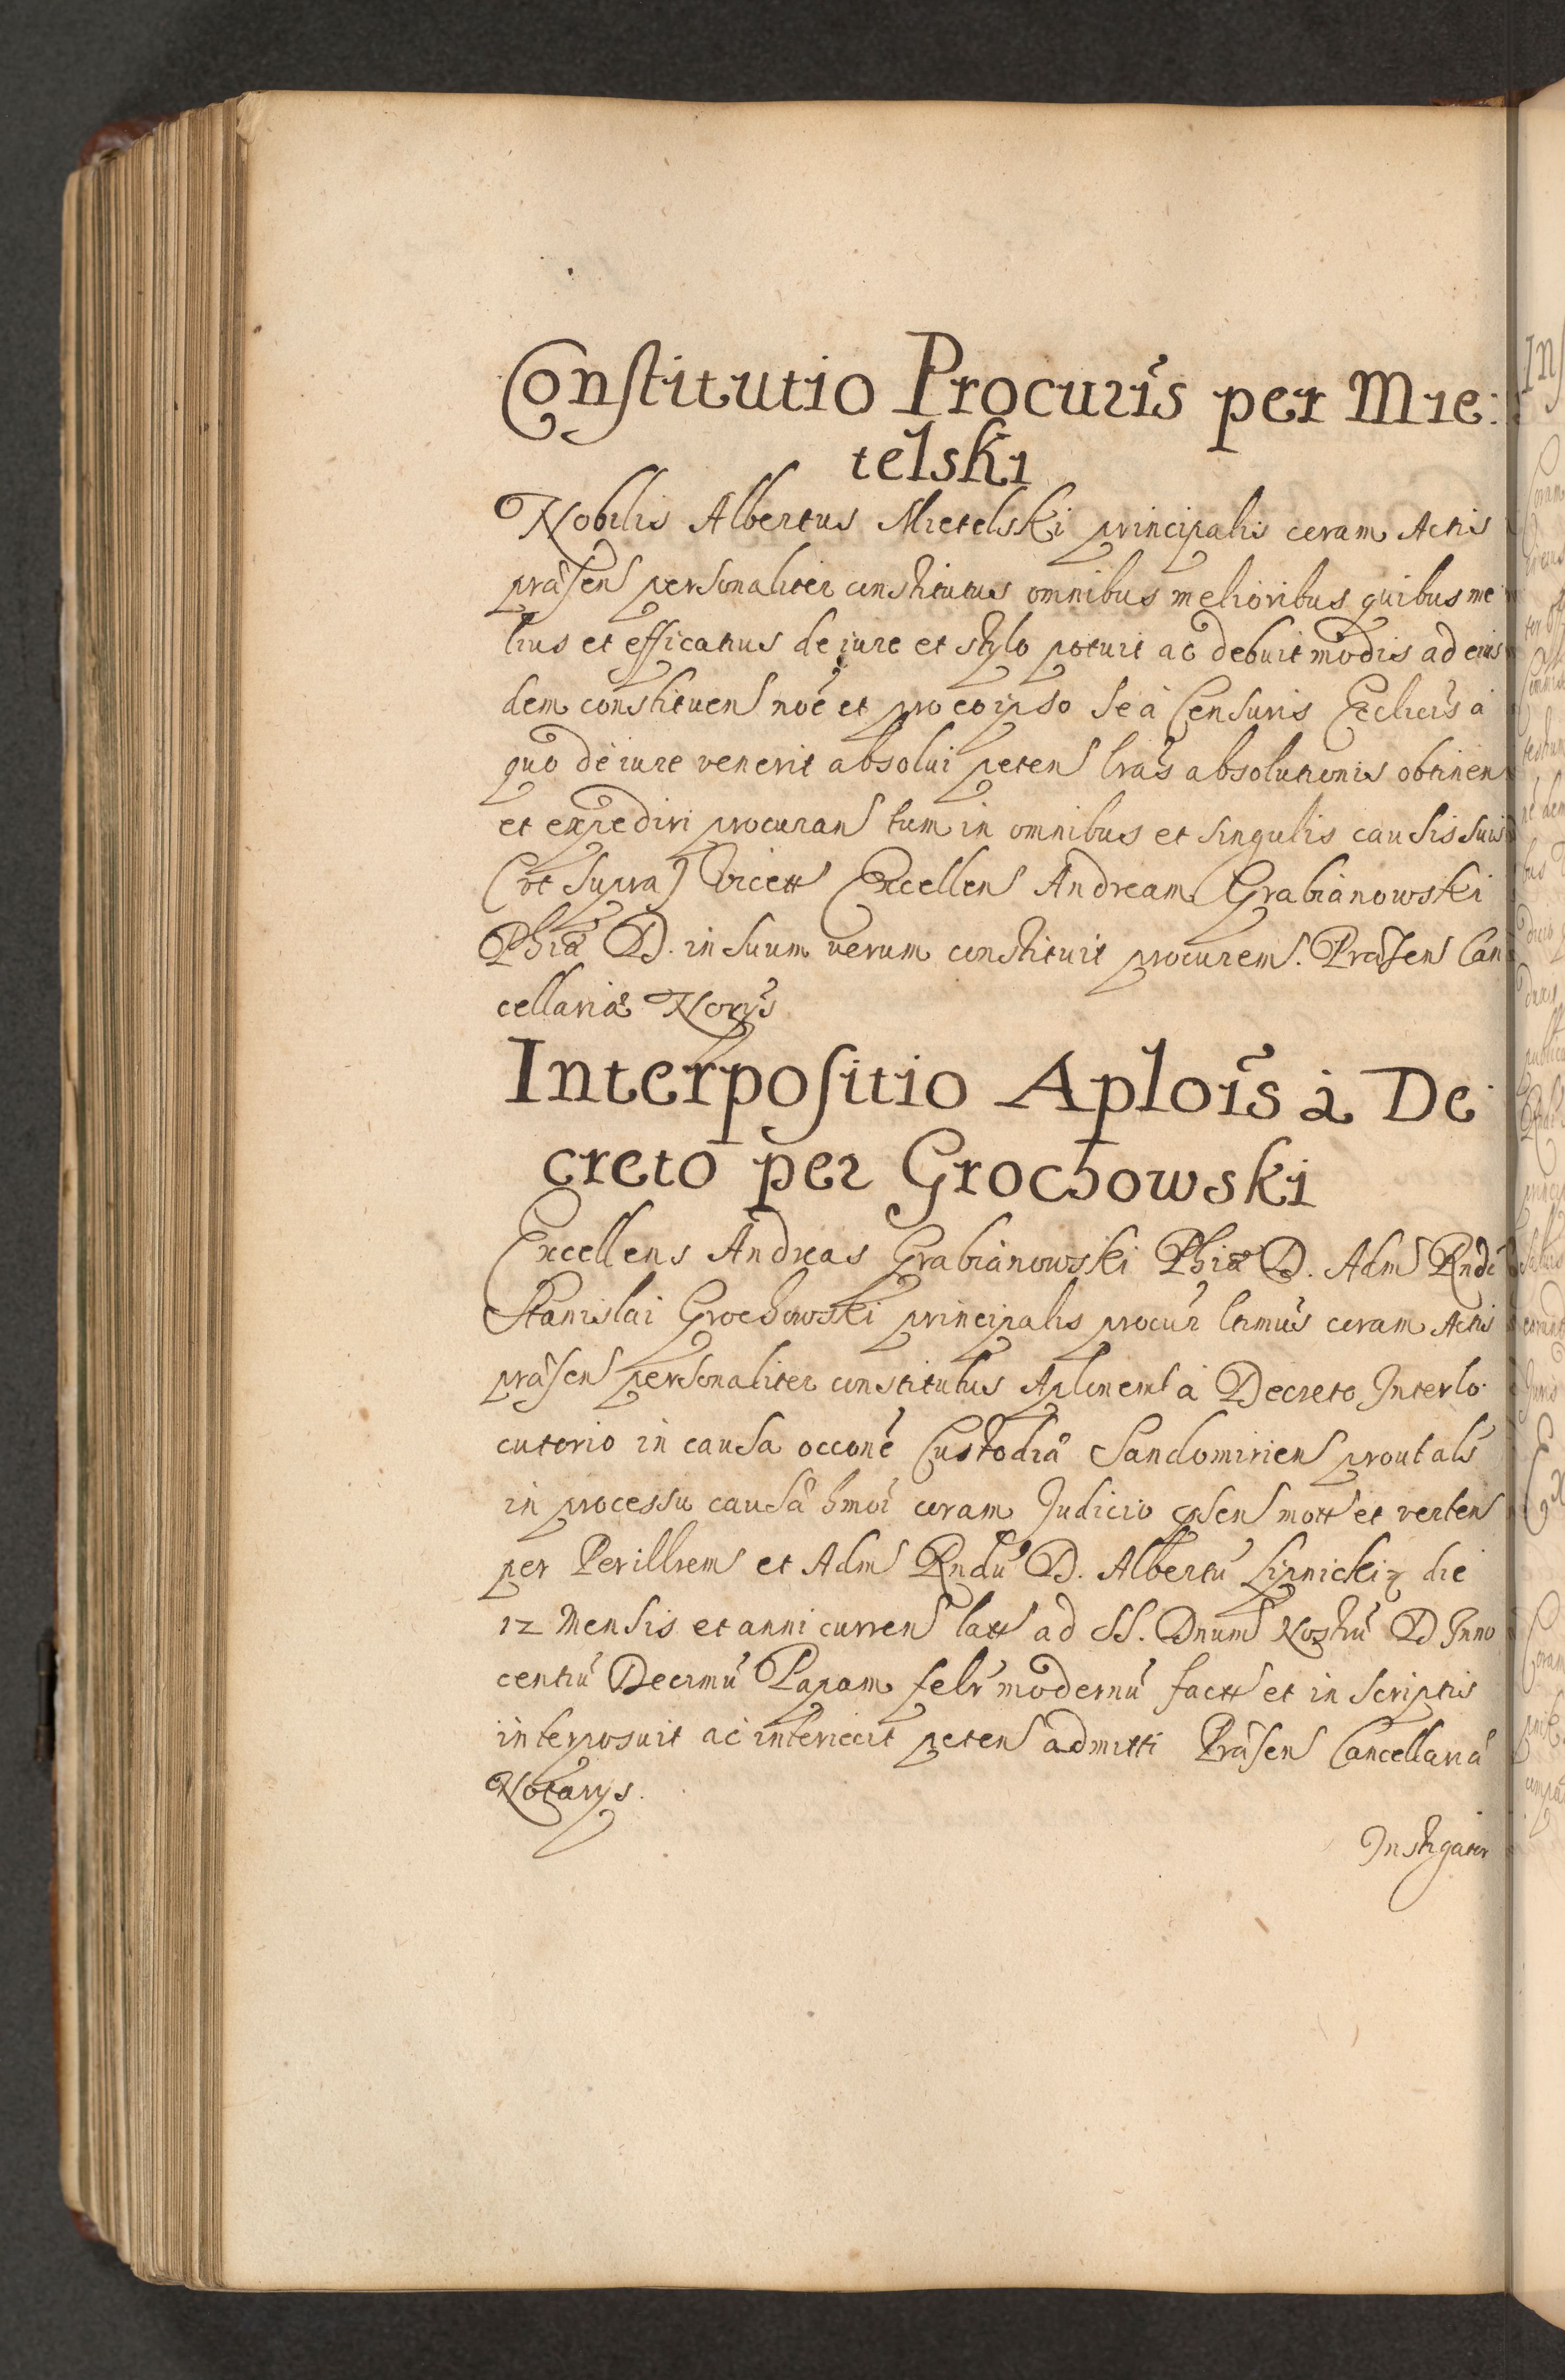 Constitutio Procuris per Mie:
telski
Nobilis Albertus Mietelski principalis coram Actis
præsens personaliter constitutus omnibus melioribus quibus me
lius et efficatius de iure et stylo potuit ac debuit modis ad eius
dem constituens noe et pro eo ipso se à Censuris Ecclicis à
quo de iure venerit absolui petens lras absolutionis obtinen
et expediri procurans tum in omnibus et singulis causis suis
(ut supra) Excellens Andream Grabianowski
Phiæ D. in suum verum constituit procurem. Præsens Can
cellariæ Norys
Interpositio Aplois à De
creto per Grochowski
Excellens Andreas Grabianowski Phiæ D. Adm Rndi
Stanislai Grochowski principalis procur ltimus coram Actis
præsens personaliter constitutus Aplonem à Decreto Interlo
cutorio in causa occone Custodiæ Sandomiriens prout als
in processu causæ hmoi coram Judicio psens mott et vertens
per Perillrem et Adm Rndu D. Albertu Lipnicki die
12 Mensis et anni currens latt ad SS. Dnum Nostru D Inno
centiu Decimu Papam felr modernu fact et in scriptis
interposuit ac interiecit petens admitti Præsens Cancellariæ
Notarys.
Instigator